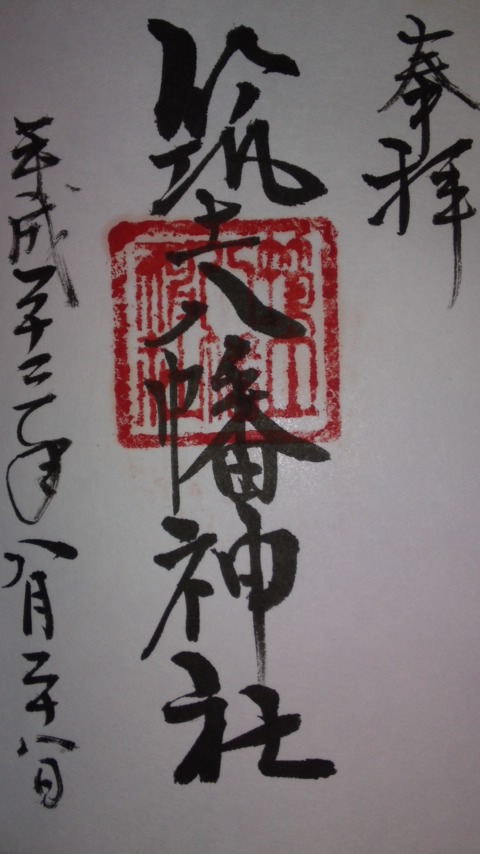 奉拝
筑土八幡神社
平成二十三年八月二十八日